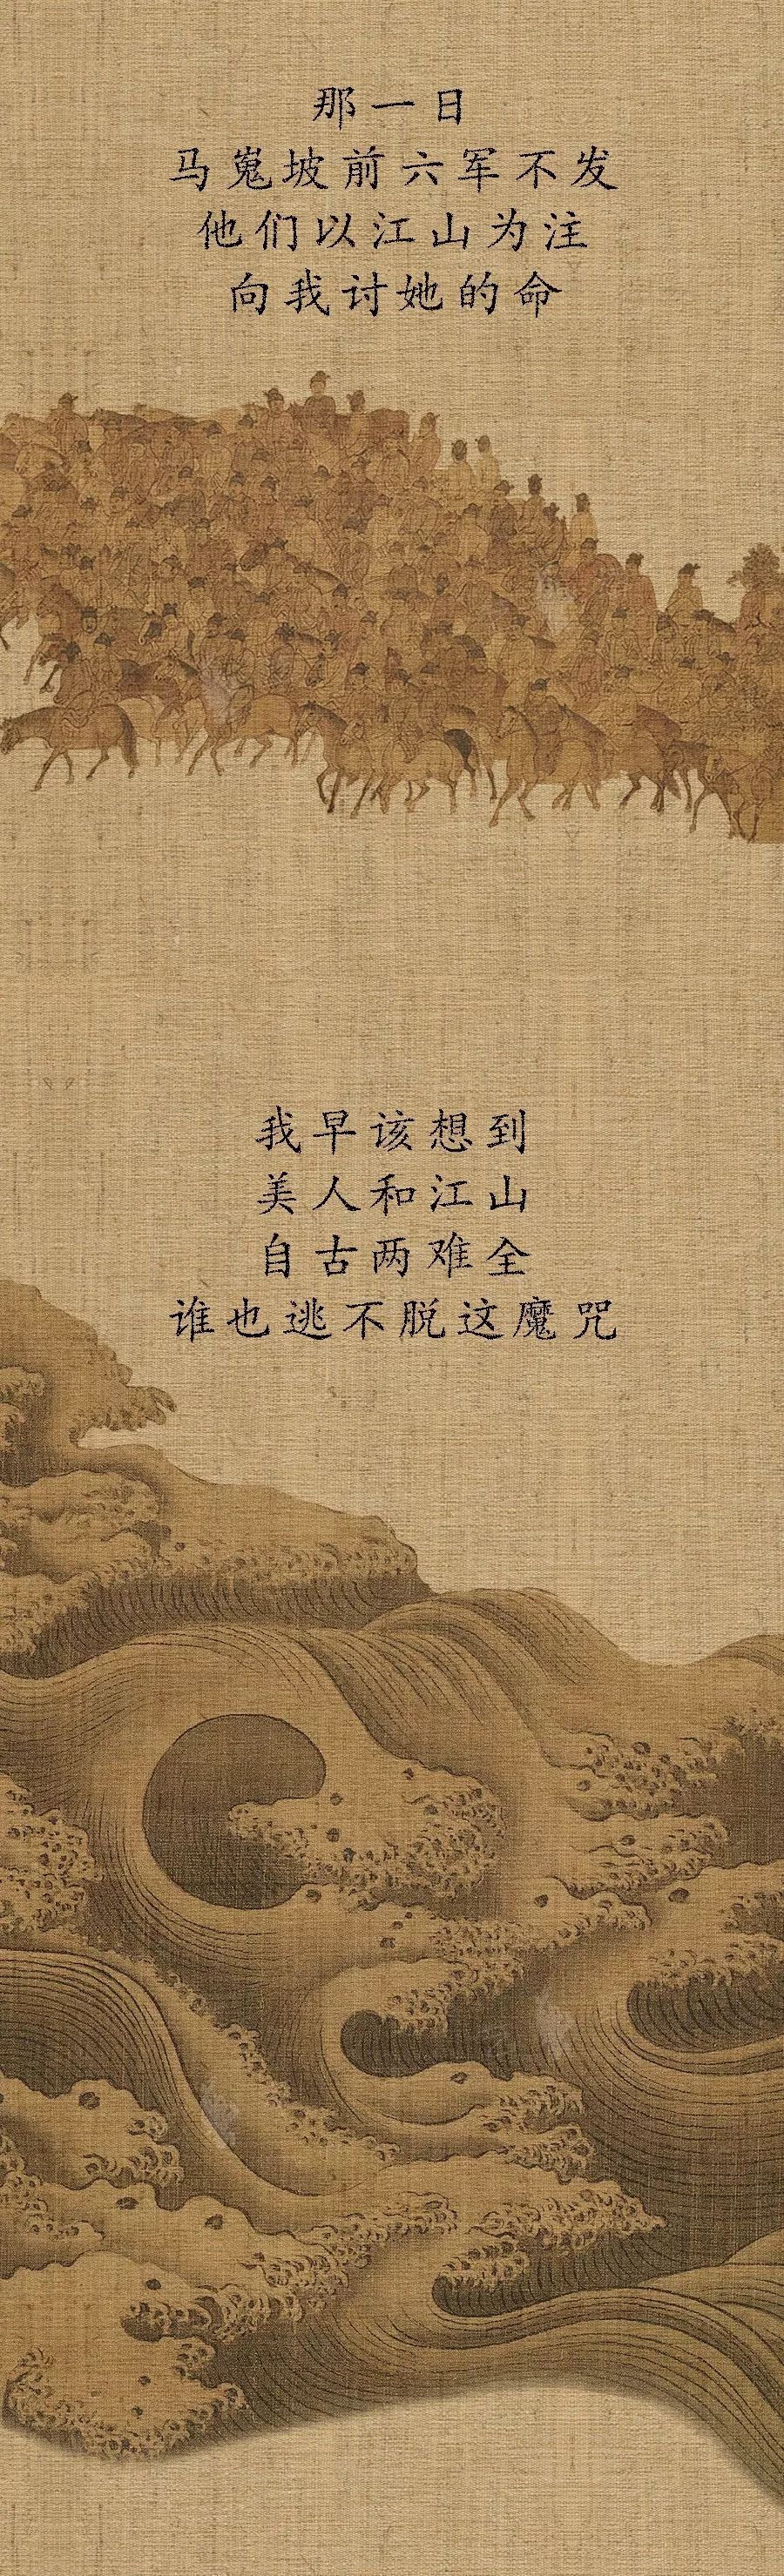 那一日
马嵬坡前六军不发
他们以江山为注
向我讨她的命
我早该想到
美人和江山
自古两难全
谁也逃不脱这魔咒